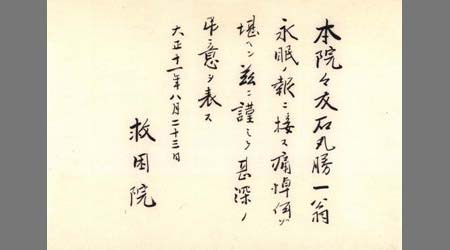 本院々友石丸勝一翁
永眠ノ報ニ接ス痛悼何ゾ
堪ヘン茲ニ謹ミテ甚深ノ
弔意ヲ表ス
大正十一年八月二十三日
救困院